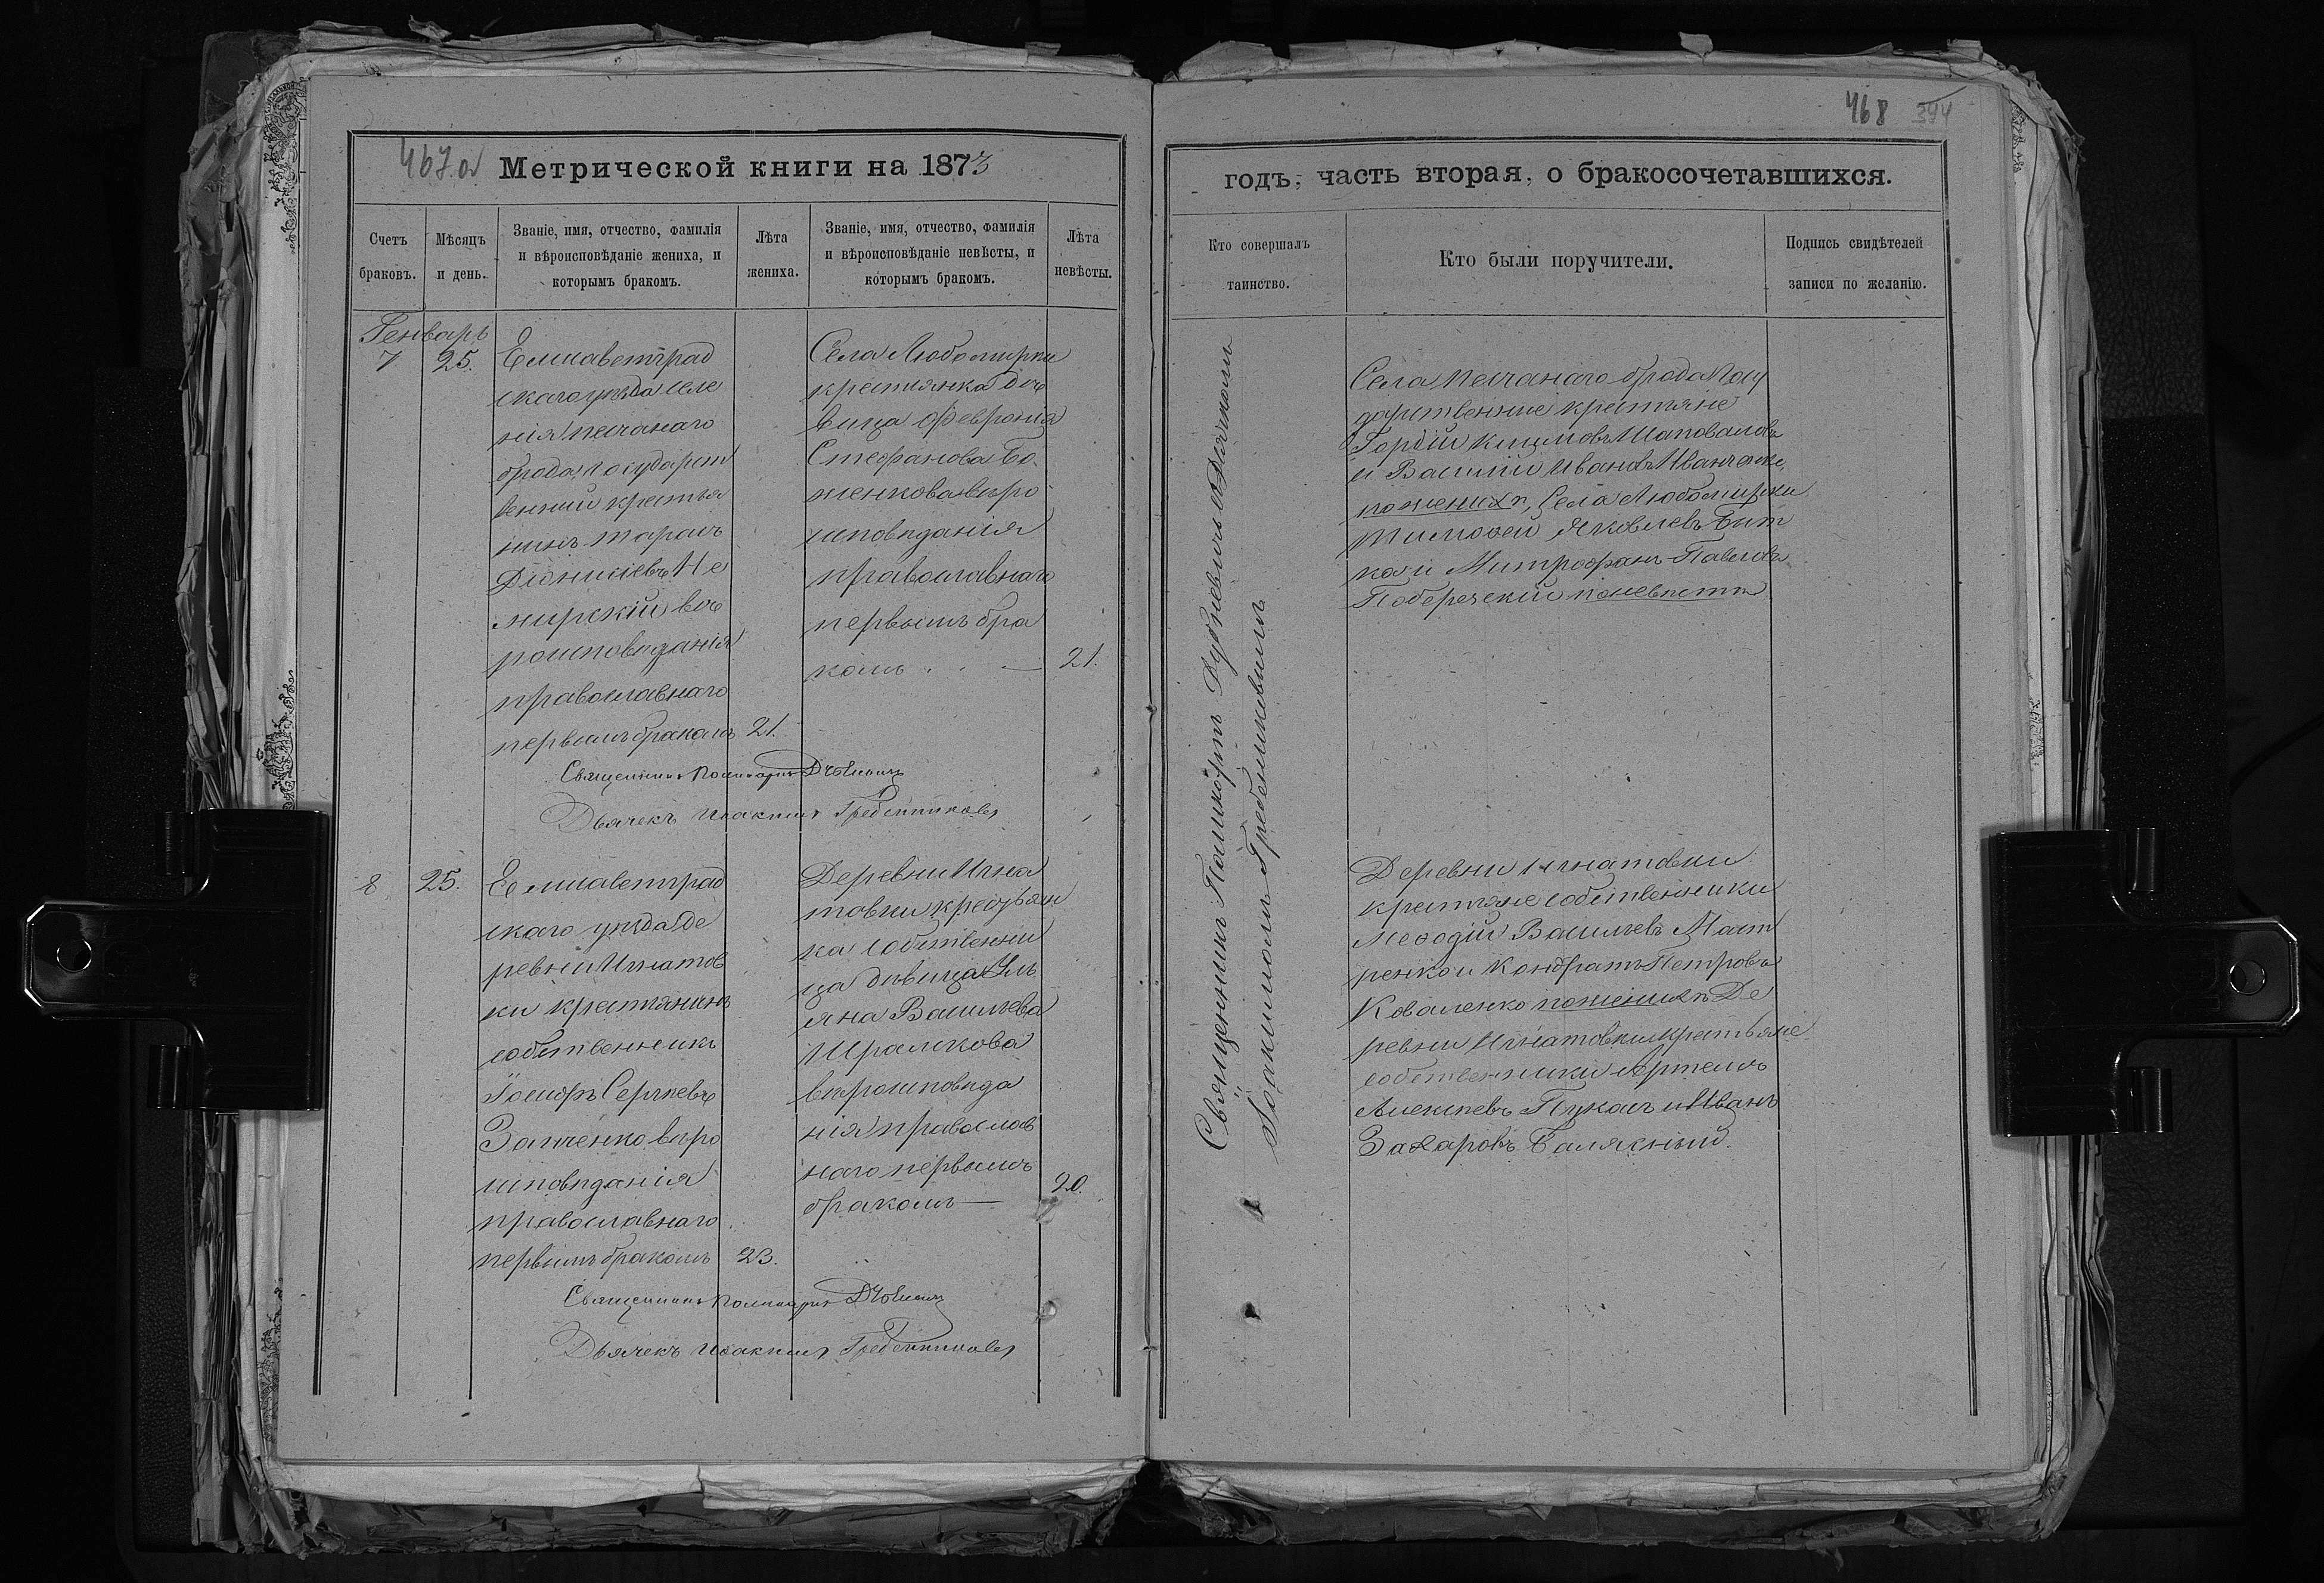 467 об
Метрической книги на 1873
Счетъ браковъ.
Мѣсяцъ и день.
Званіе, имя, отчество, фамилія
и вѣроисповѣданіе жениха, и
которымъ бракомъ.
Лѣта жениха.
Званіе, имя, отчество, фамилія
и вѣроисповѣданіе невѣсты, и
которымъ бракомъ.
Лѣта невѣсты.
Генварь
7
25.
Елисаветград
скаго уѣзда селе
нія песчанаго
брода государст
венный крестья
нинъ Тарасъ
Діонисіевъ Не
мирскій вѣ
роисповѣданія
православнаго
первымъ бракомъ
21.
Села Любомирки
крестьянка дѣ
вица Февронія
Стефанова Бо
женкова вѣро
исповѣданія
православнаго
первымъ бра
комъ
21.
Священникъ
Дьячекъ Иоакимъ Гребенниковъ
8
25.
Елисаветград
скаго уѣзда де
ревни Игнатов
ки крестьянинъ
собственникъ
Іосифъ Сергѣевъ
Заиченко вѣро
исповѣданія
православнаго
первымъ бракомъ
23.
Деревни Игна
товки крестьян
ка собственни
ца дѣвица Уль
яна Васильева
Шрамкова
вѣроисповѣда
нія православ
наго первымъ
бракомъ
20.
Священникъ
Дьячекъ Иоакимъ Гребенниковъ
468 394
годъ, часть вторая, о бракосочетавшихся.
Кто совершалъ таинство.
Кто были поручители.
Подпись свидѣтелей записи по желанію.
Священникъ съ Дьячкомъ
Іоакимомъ Гребенниковымъ
Села песчанаго брода Госу
дарственные крестьяне
Гордій Климовъ Шаповаловъ
и Василій Ивановъ Иванченко
по женихѣ, Села Любомирки
Тимофей Яковлевъ Бит
ка и Митрофанъ Павловъ
Поберезскій по невѣстѣ
Деревни Игнатовки
крестьяне собственники
Меѳодій Васильевъ Маст
ренко и Кондратъ Петровъ
Коваленко по женихѣ Де
ревни Игнатовки крестьяне
собственники Артемъ
Алексѣевъ Пукасъ и Иванъ
Захаровъ Балякный.